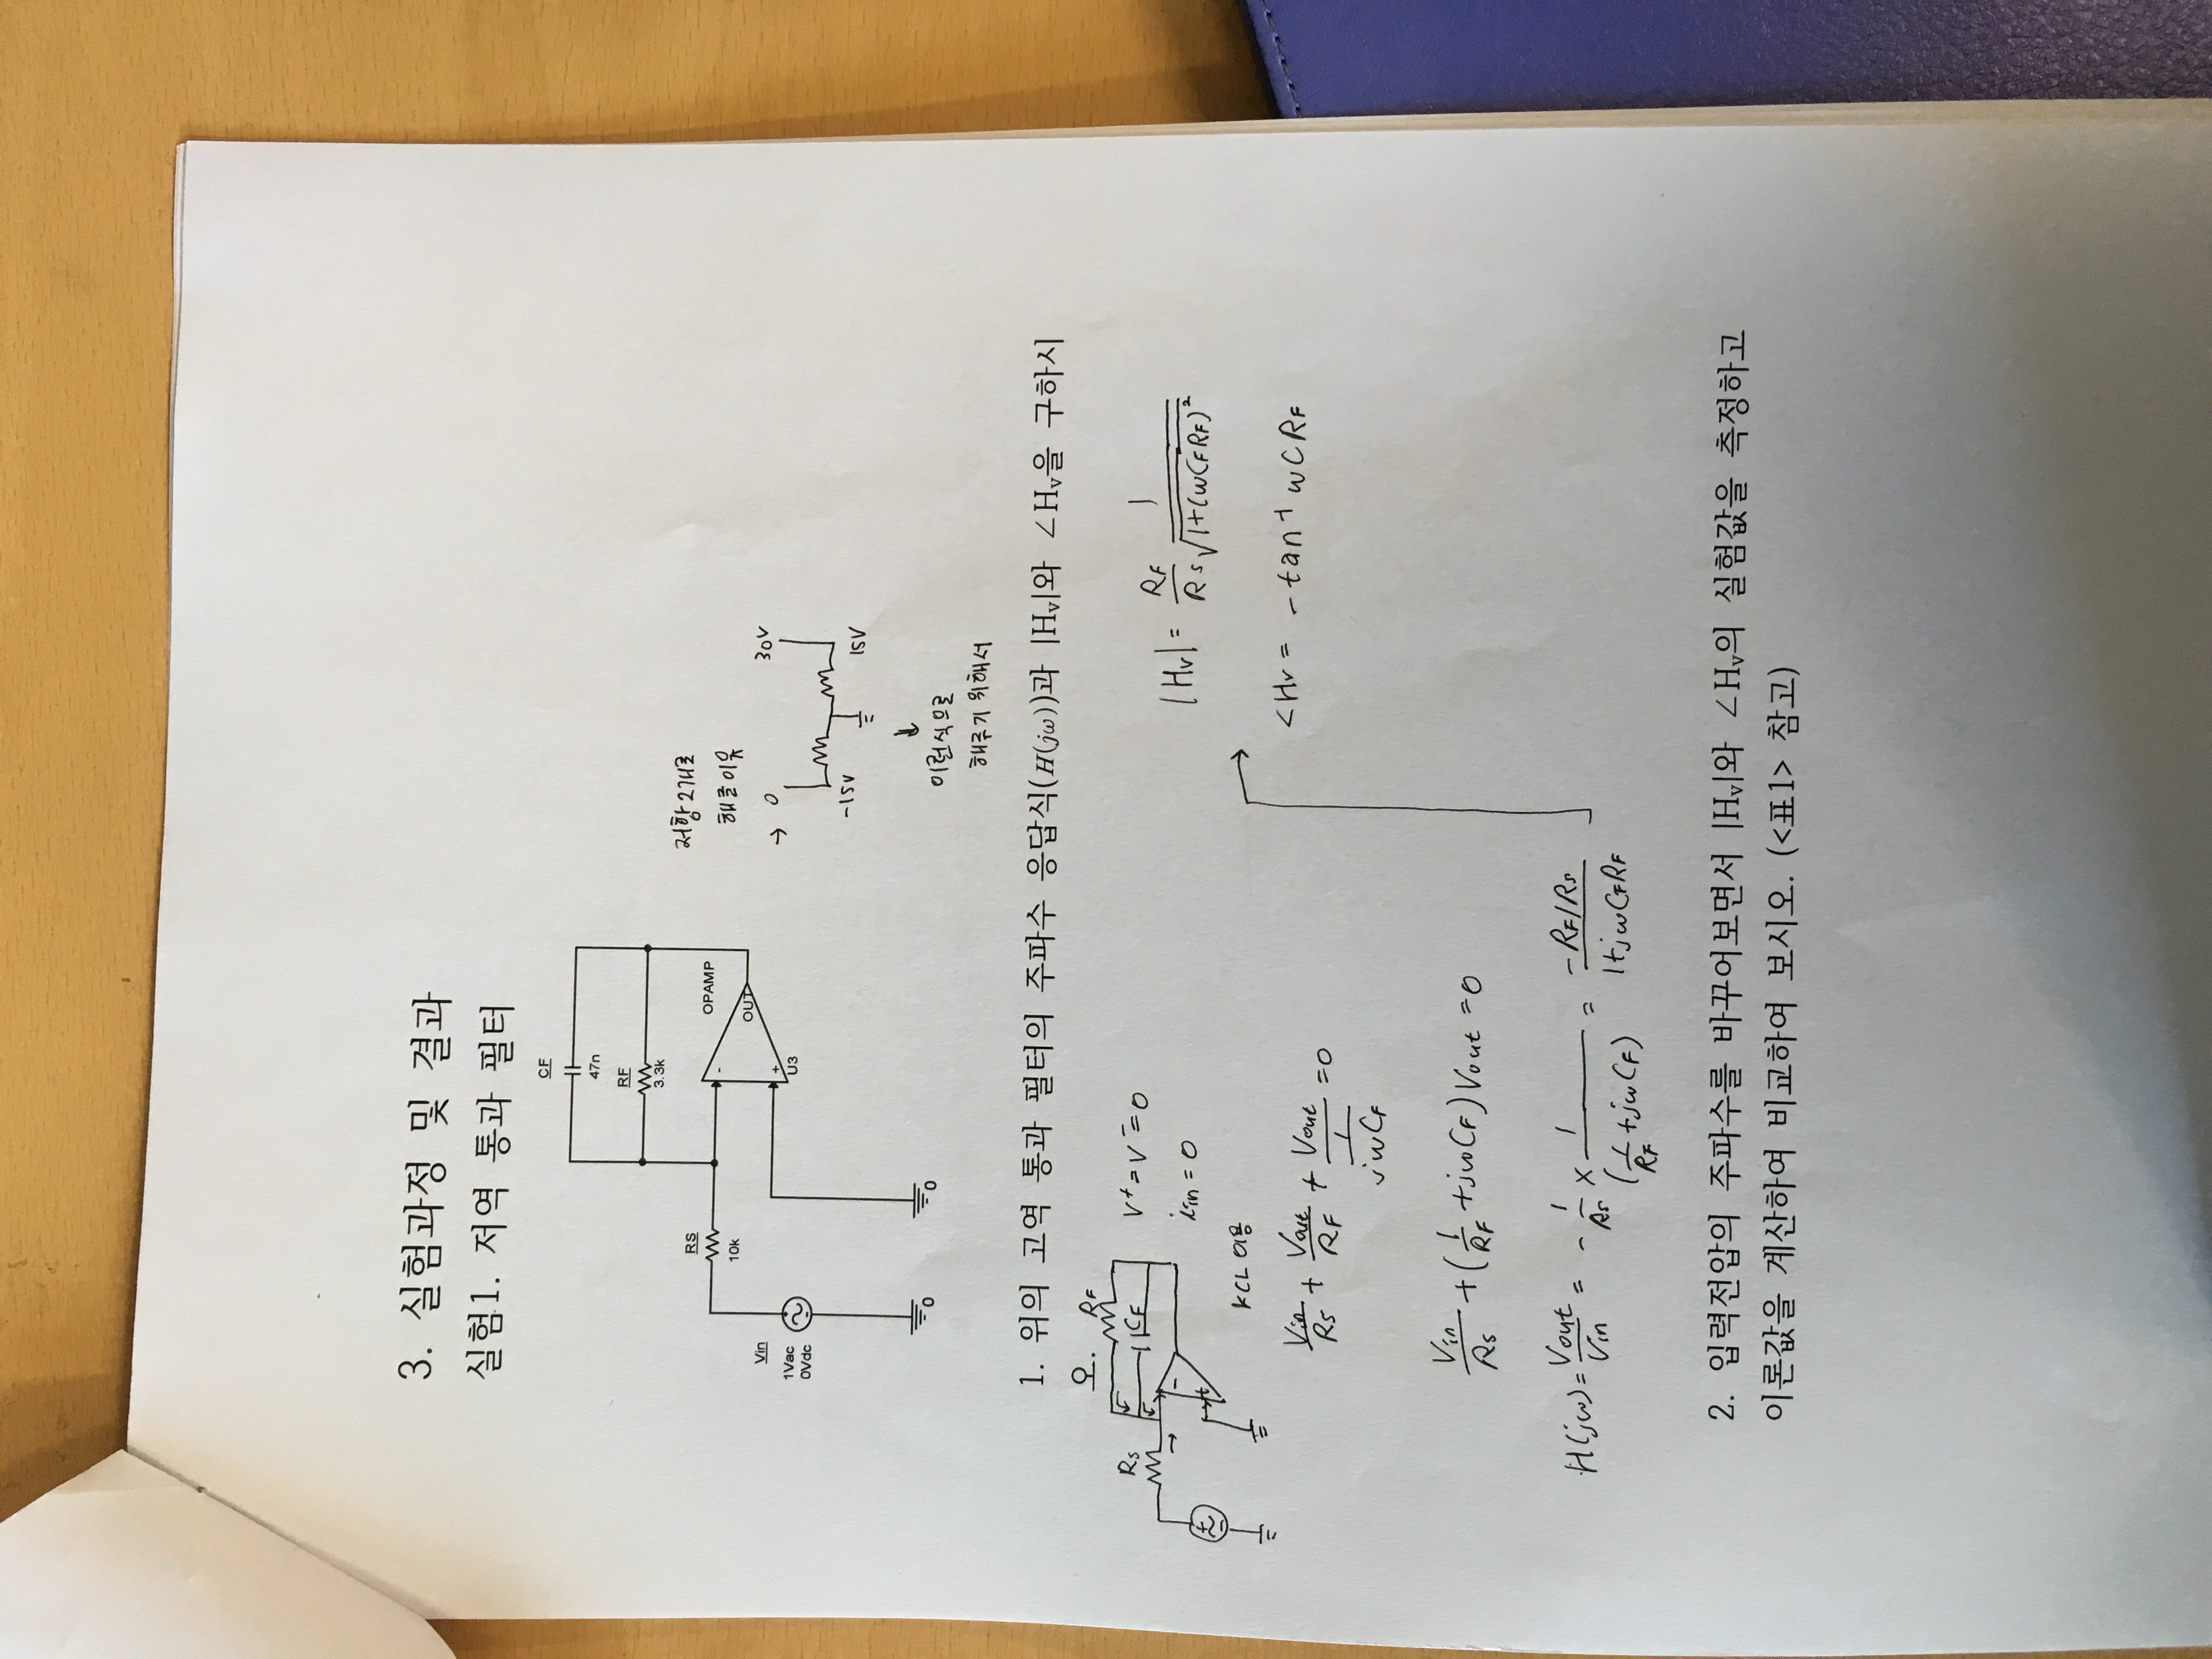 3. 실험과정 및 결과
실험1. 저역 통과 필터
CF
47n
RF
3.3k
RS
10k
OPAMP
-
OUT
+
U3
Vin
1Vac
0Vdc
0
0
저항 2개로
해줄 이유
→ 0 30V
-15V 15V
↓
이런식으로
해주기 위해서
1. 위의 고역 통과 필터의 주파수 응답식(H(jω))과 |Hv|와 ∠Hv을 구하시
오.
RF
RS
CF
V⁺=V⁻=0
iin = 0
KCL 이용
Vin/RS + Vout/RF + Vout/(1/jωCF) = 0
Vin/RS + (1/RF + jωCF) Vout = 0
H(jω) = Vout/Vin = - 1/RS × 1/(1/RF + jωCF) = -RF/RS / 1+jωCFRF
|Hv| = RF/RS 1/√1+(ωCFRF)²
∠Hv = -tan⁻¹ ωCRF
2. 입력전압의 주파수를 바꾸어보면서 |Hv|와 ∠Hv의 실험값을 측정하고
이론값을 계산하여 비교하여 보시오. (<표1> 참고)